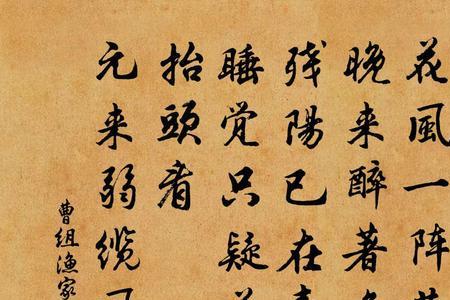 花風一阵
晚来醉著
残陽已在
睡觉只疑
抬頭看
元来弱缆
曹组渔家